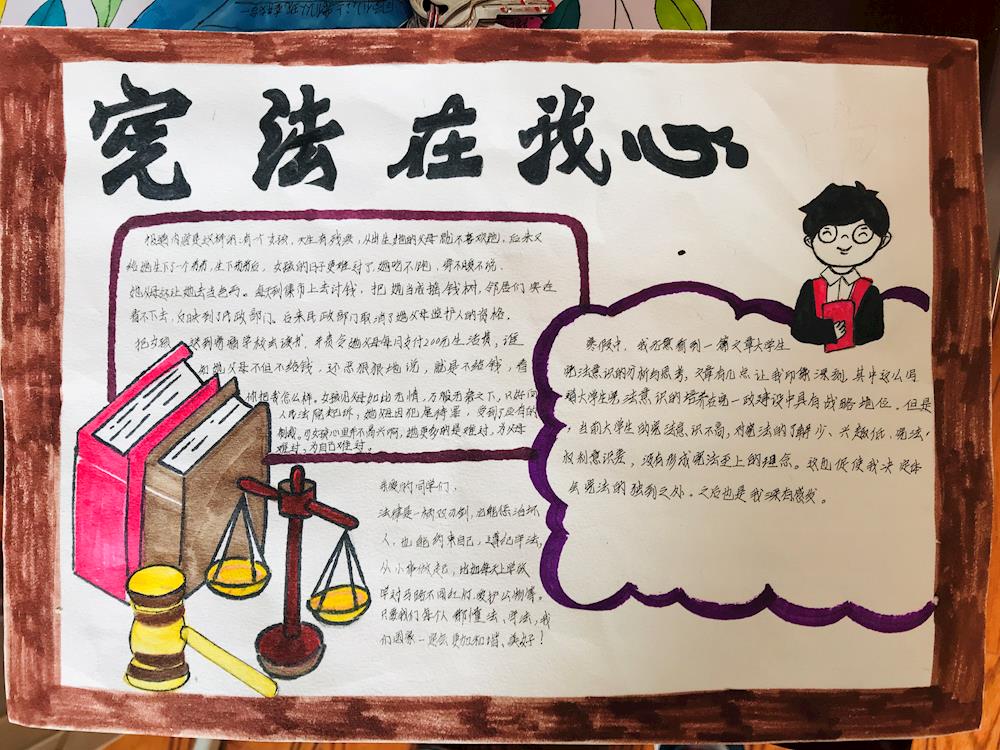 宪法在我心
视频内容是这样的:有个女孩,天生有残疾,从出生她的父母就不喜欢她,后来又
给她生下了一个弟弟,生下弟弟后,女孩的日子更难过了,她吃不饱,穿不暖不说,
她父母还让她去。每天到集市上去讨钱,把她当成摇钱树,邻居们实在
看不下去,反映到了民政部门。后来民政部门取消了她父母监护人的资格.
把女孩送到普通学校去读书,并责令她父母每月支付200元生活费,谁
知她父母不但不给钱,还恶狠狠地说,就是不给钱,看
你把我怎么样。女孩见父母如此无情,万般无奈之下,只好向
人民法院起诉,她父母因犯罪,受到了应有的
制裁。可女孩心里并不高兴啊,她更多的是难过,为父母
难过,为自己难过。
亲爱的同学们,
法律是一柄双刃剑,它能惩治坏
人,也能约束自己,遵纪守法,
从小事做起,比如每天上学放
学过马路不闯红灯,爱护公物等。
只要我们每个人都懂法、守法,我
们国家一定会更加和谐、美好!
寒假中,我无意看到一篇文章大学生
宪法意识的分析与思考,文章有几点让我印象深刻,其中这么写
道大学生宪法意识的培养在宪政建设中具有战略地位。但是
,当前大学生的宪法意识不高,对宪法的了解少、兴趣低、宪法
权利意识差,没有形成宪法至上的理念。这也促使我决定
宪法的独到之处。之后也是我深有感受。